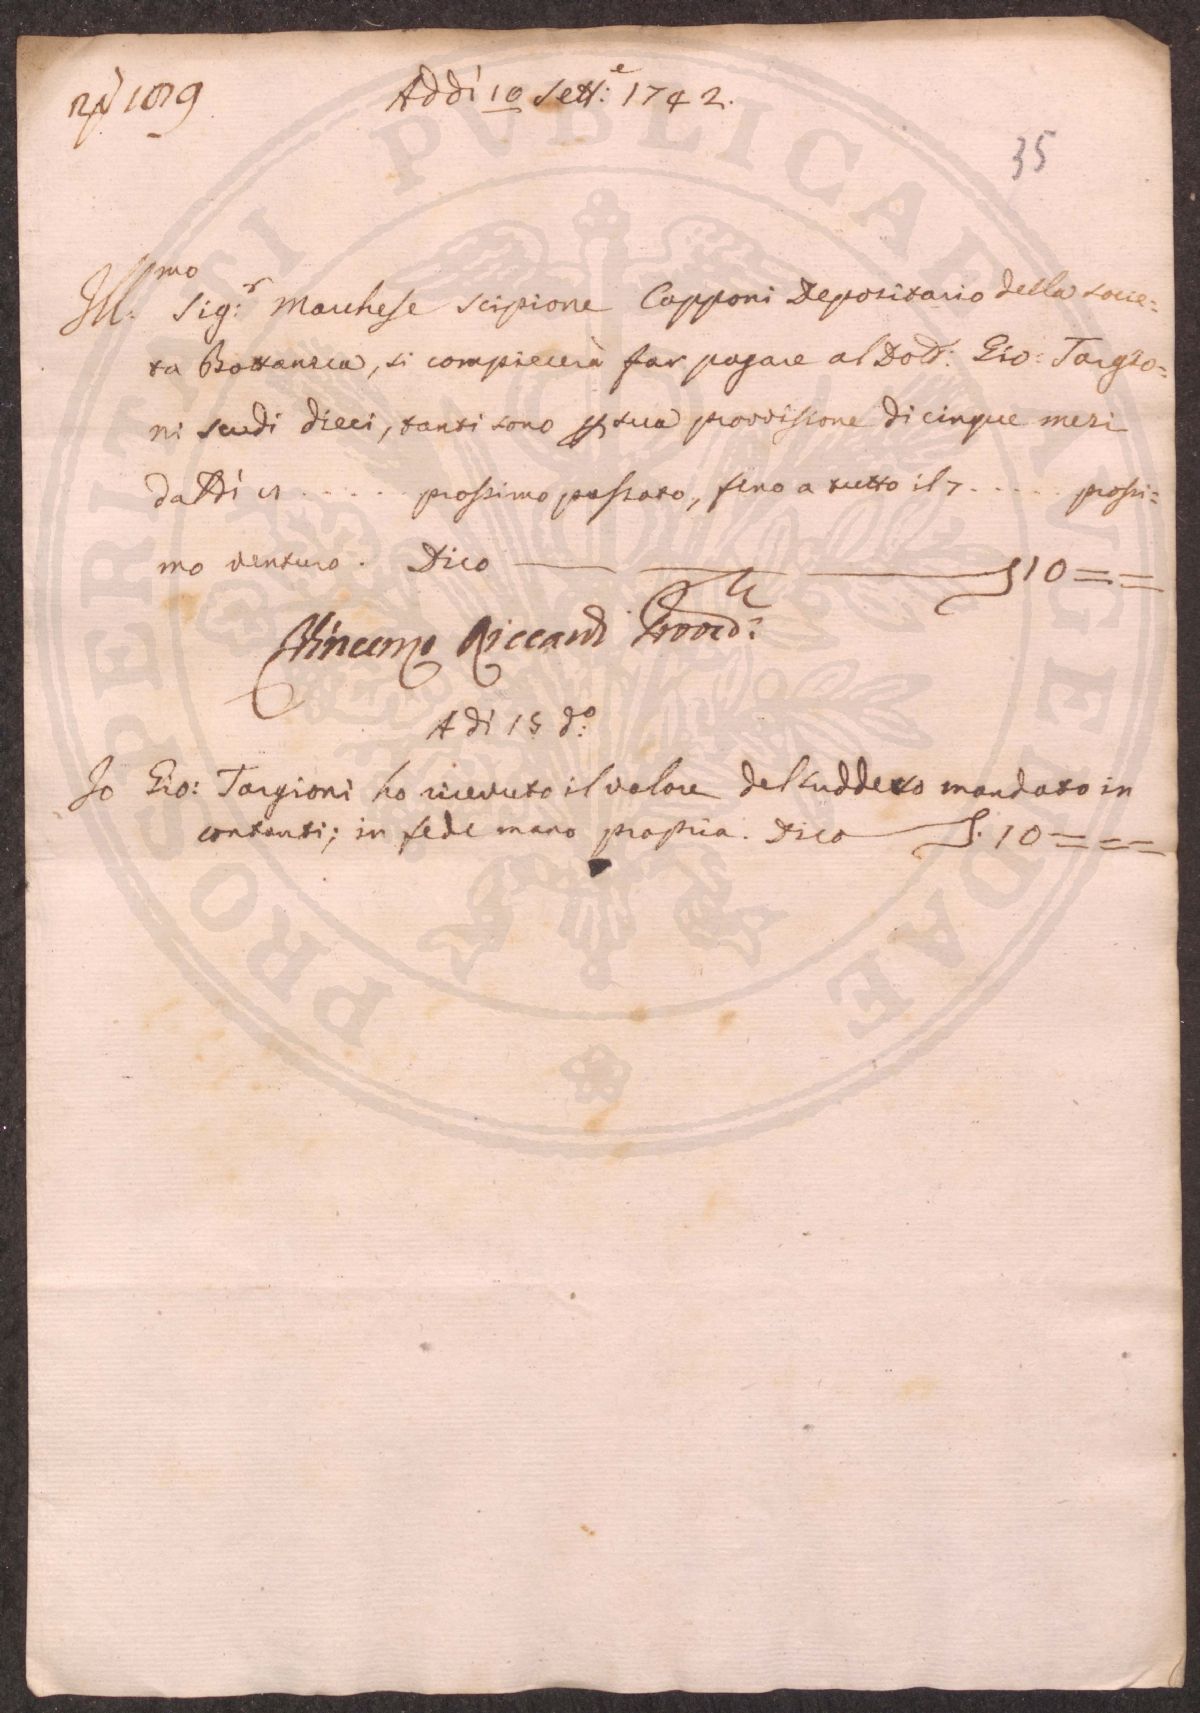 Addì 10 Sett:e 1742.
35
Ill:mo Sig:r Marchese Scipione Capponi Depositario della Socie=
ta Bottanica, si compiecerà far pagare al Dott: Gio: Targio=
ni scudi dieci, tanti sono p sua provvisione di cinque mesi
da Dì ..... prossimo passato, fino a tutto il ..... prossi=
mo venturo. Dico 10 = =
Vincenzo Riccardi Provvd:e
A dì 15 do:
Io Gio: Targioni ho ricevuto il valore del suddetto mandato in
contanti; in fede mano propria. Dico 10 = = =
PROSPERITATI PVBLICAE AVGENDAE